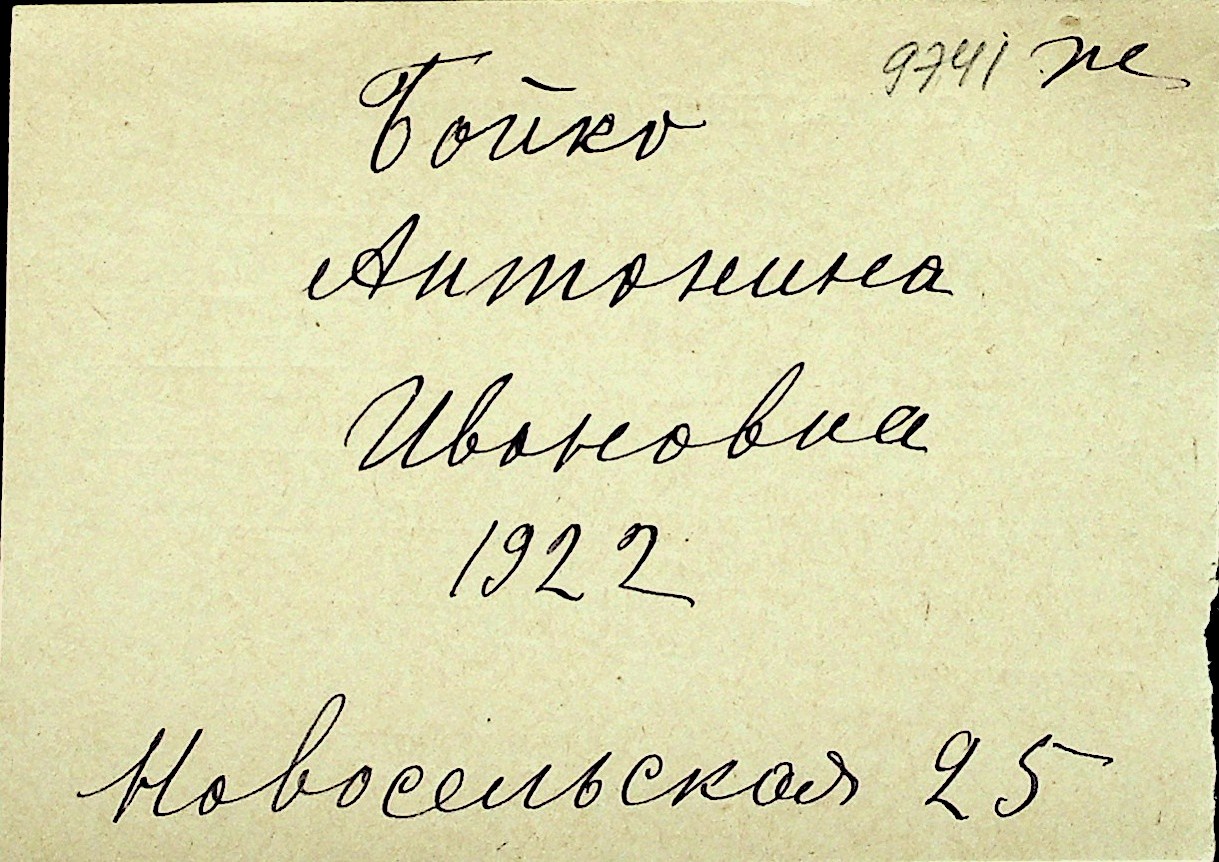 9741
Бойко
Антонина
Ивановна
1922
Новосельская 25